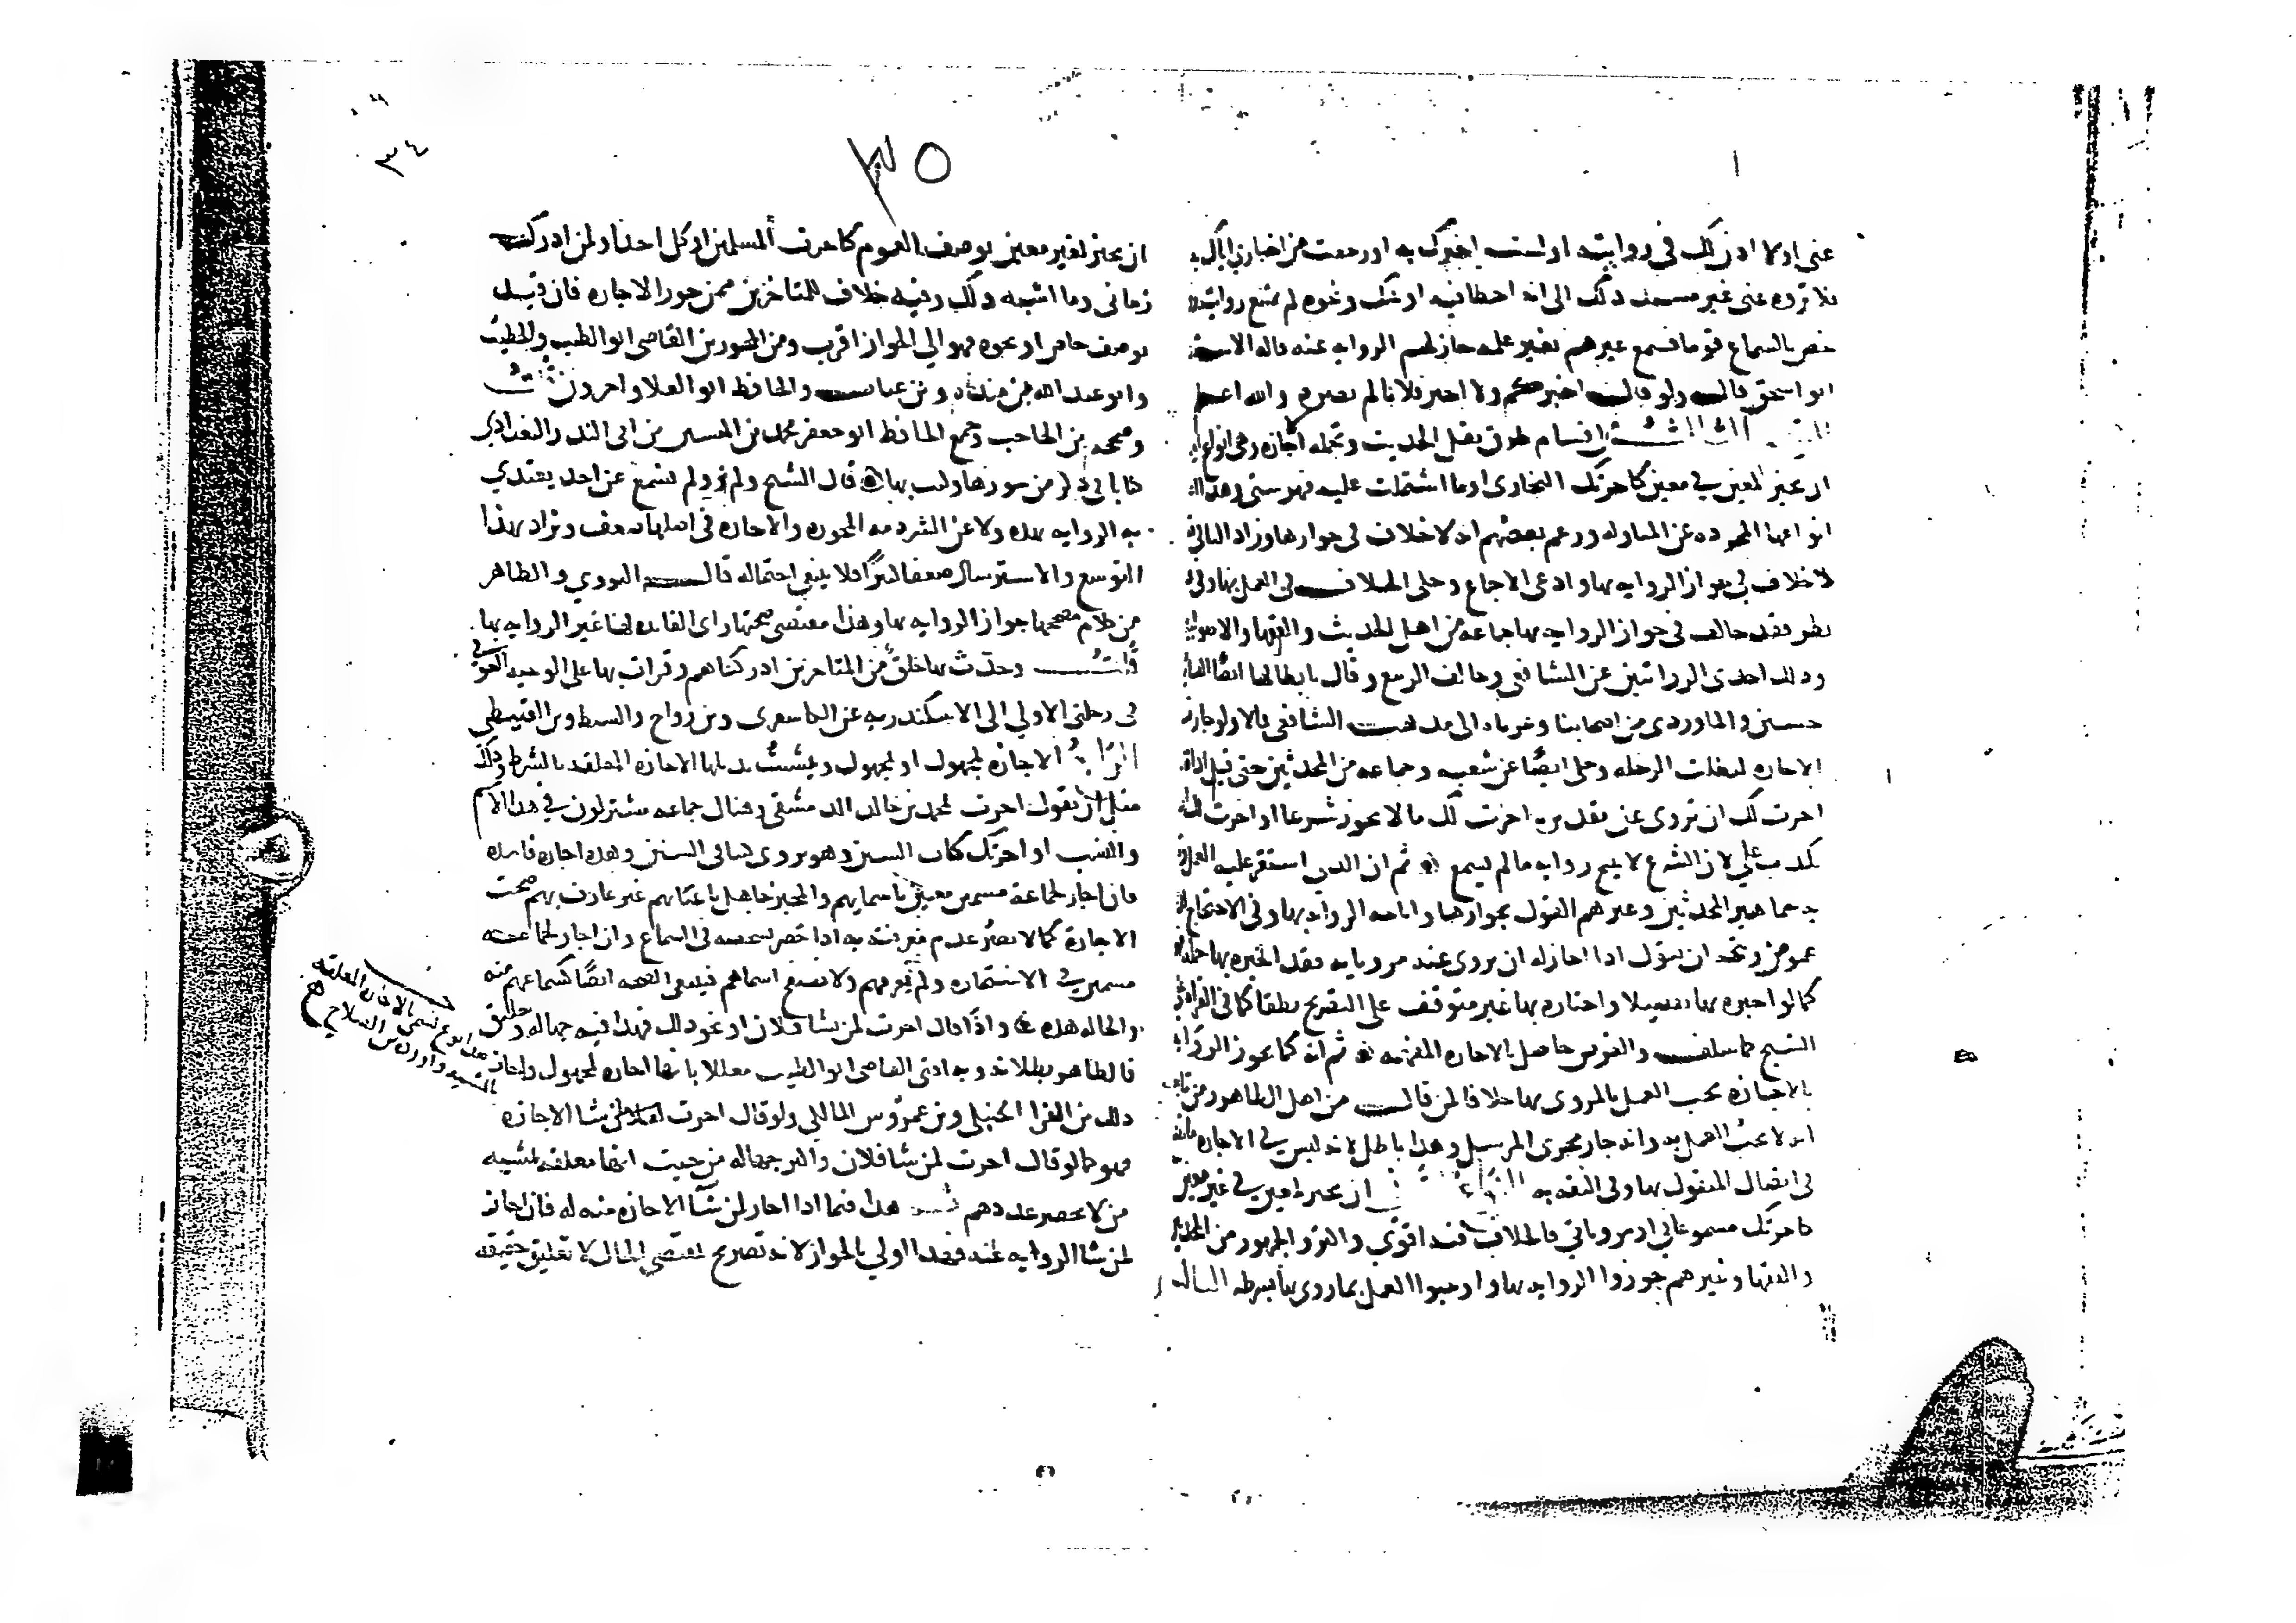 ٣٥
٣٤
عنى او لا اذن لك فى روايته او لست اخبرك به او رجعت من اخبارى اياك به
فلا تروه عنى غير مسند ذلك الى انه اخطا فيه او شك ونحوه لم تمتنع روايته
خص بالسماع قوما فسمع غيرهم بغير علمه جاز لهم الروايه عنه قاله الاستاذ
ابو اسحق قال ولو قال اخبركم ولا اخبر فلانا لم يضره والله اعلم
الثالث اقسام طرق نقل الحديث وتحمله اجازه وهى انواع
ان يجيز لمعين في معين كاجزتك البخارى او ما اشتملت عليه فهرستى وهذا
انواعها المجرده عن المناوله وزعم بعضهم انه لا خلاف فى جوازها وزاد الباجي
لا خلاف في جواز الروايه بها وادعى الاجماع وحكى الخلاف فى العمل بها وفيه
نظر فقد خالف فى جواز الروايه بها جماعه من اهل الحديث والفقها والاصوليين
وذلك احدى الروايتين عن الشافعي وخالف الربيع وقال بابطالها ايضا القاضي
حسين والماوردى من اصحابنا وعزياه الى مذهب الشافعي قالا ولو جازت
الاجازه لبطلت الرحله وحكى ايضا عن شعبه وجماعه من المحدثين حتى قيل
اجزت لك ان تروى عنى تقديره اجزت لك ما لا يجوز شرعا او اجزت لك
تكذب علي لان الشرع لا يبيح روايه ما لم يسمع ثم ان الذي استقر عليه العمل
جماهير المحدثين وغيرهم القول بجوازها واباحه الروايه بها وفى الاحتجاج
غموض ويتجه ان يقول اذا اجاز له ان يروى عنه مروياته فقد اخبره بها جمله
كما لو اخبره بها تفصيلا واخباره بها غير متوقف على التصريح نطقا كما فى القراه
الشيخ كما سلف والغرض حاصل بالاجازه المفهمه ثم انه كما تجوز الروايه
بالاجازه يجب العمل بالمروى بها خلافا لمن قال من اهل الظاهر ومن تابعهم
انه لا يجب العمل به وانه جار مجرى المرسل وهذا باطل لانه ليس في الاجازه
فى اتصال المنقول بها وفى الثقه به الثانى ان يجيز لمعين في غير معين
كاجزتك مسموعاتى او مروياتي فالخلاف فيه اقوى واكثر والجمهور من المحدثين
والفقها وغيرهم جوزوا الروايه بها واوجبوا العمل بما روى بها بشرطه الثالث
ان يجيز لغير معين بوصف العموم كاجزت المسلمين او كل احد او لمن ادرك
زمانى وما اشبه ذلك وفيه خلاف للمتاخرين ممن جوز الاجازه فان قيد
بوصف حاصر او نحوه فهو الي الجواز اقرب ومن المجوزين القاضى ابو الطيب والخطيب
وابو عبد الله بن منده وبن عتاب والحافظ ابو العلا واخرون
وصححه بن الحاجب وجمع الحافظ ابو جعفر محمد بن الحسين بن ابى البدر البغدادي
كتابا فى ذكر من جوزها وكتب بها قال الشيخ ولم نر ولم نسمع عن احد يقتدي
به الروايه بهذه ولا عن الشرذمه المجوزه والاجازه فى اصلها ضعف وتزاد بهذا
التوسع والاسترسال ضعفا كثيرا فلا ينبغى احتماله قال النووي والظاهر
من كلام مصححها جواز الروايه بها وهذا مقتضى صحتها واى الفائده لها غير الروايه بها
قلت وحدث بها خلق من المتاخرين ادركناهم وقرات بها على الوحيد العوفي
فى رحلتى الاولي الى الاسكندريه عن الكاشغرى وبن رواح والسبط وبن القبيطي
الرابع الاجازه لمجهول او بمجهول ويتشبث بذيلها الاجازه المعلقه بالشرط وذلك
مثل ان يقول اجزت لمحمد بن خالد الدمشقى وهناك جماعه مشتركون في هذا الاسم
والنسب او اجزتك كتاب السنن وهو يروى كتبا فى السنن وهذه اجازه فاسده
فان اجاز لجماعة مسمين معينين باسمايهم والمجيز جاهل باعيانهم غير عارف بهم صحت
الاجازة كما لا يضر عدم معرفته به اذا حضر شخصه فى السماع وان اجاز لجماعه
مسمين في الاستجازه ولم يعرفهم ولا تصفح اسماهم فينبغى الصحه ايضا كسماعهم منه
والحاله هذه واذا قال اجزت لمن يشا فلان او نحو ذلك فهذا فيه جهاله وتعليق
فالظاهر بطلانه وبه افتى القاضى ابو الطيب معللا بانها اجازه لمجهول واجاز
ذلك بن الفرا الحنبلى وبن عمروس المالكي ولو قال اجزت لمن شا الاجازه
فهو كما لو قال اجزت لمن شا فلان واكثر جهاله من حيث انها معلقه بمشيه
من لا يحصر عددهم هذا فيما اذا اجاز لمن شا الاجازه منه له فان اجاز
لمن شا الروايه عنه فهذا اولى بالجواز لانه تصريح بمقتضى الحال لا تعليق حقيقه